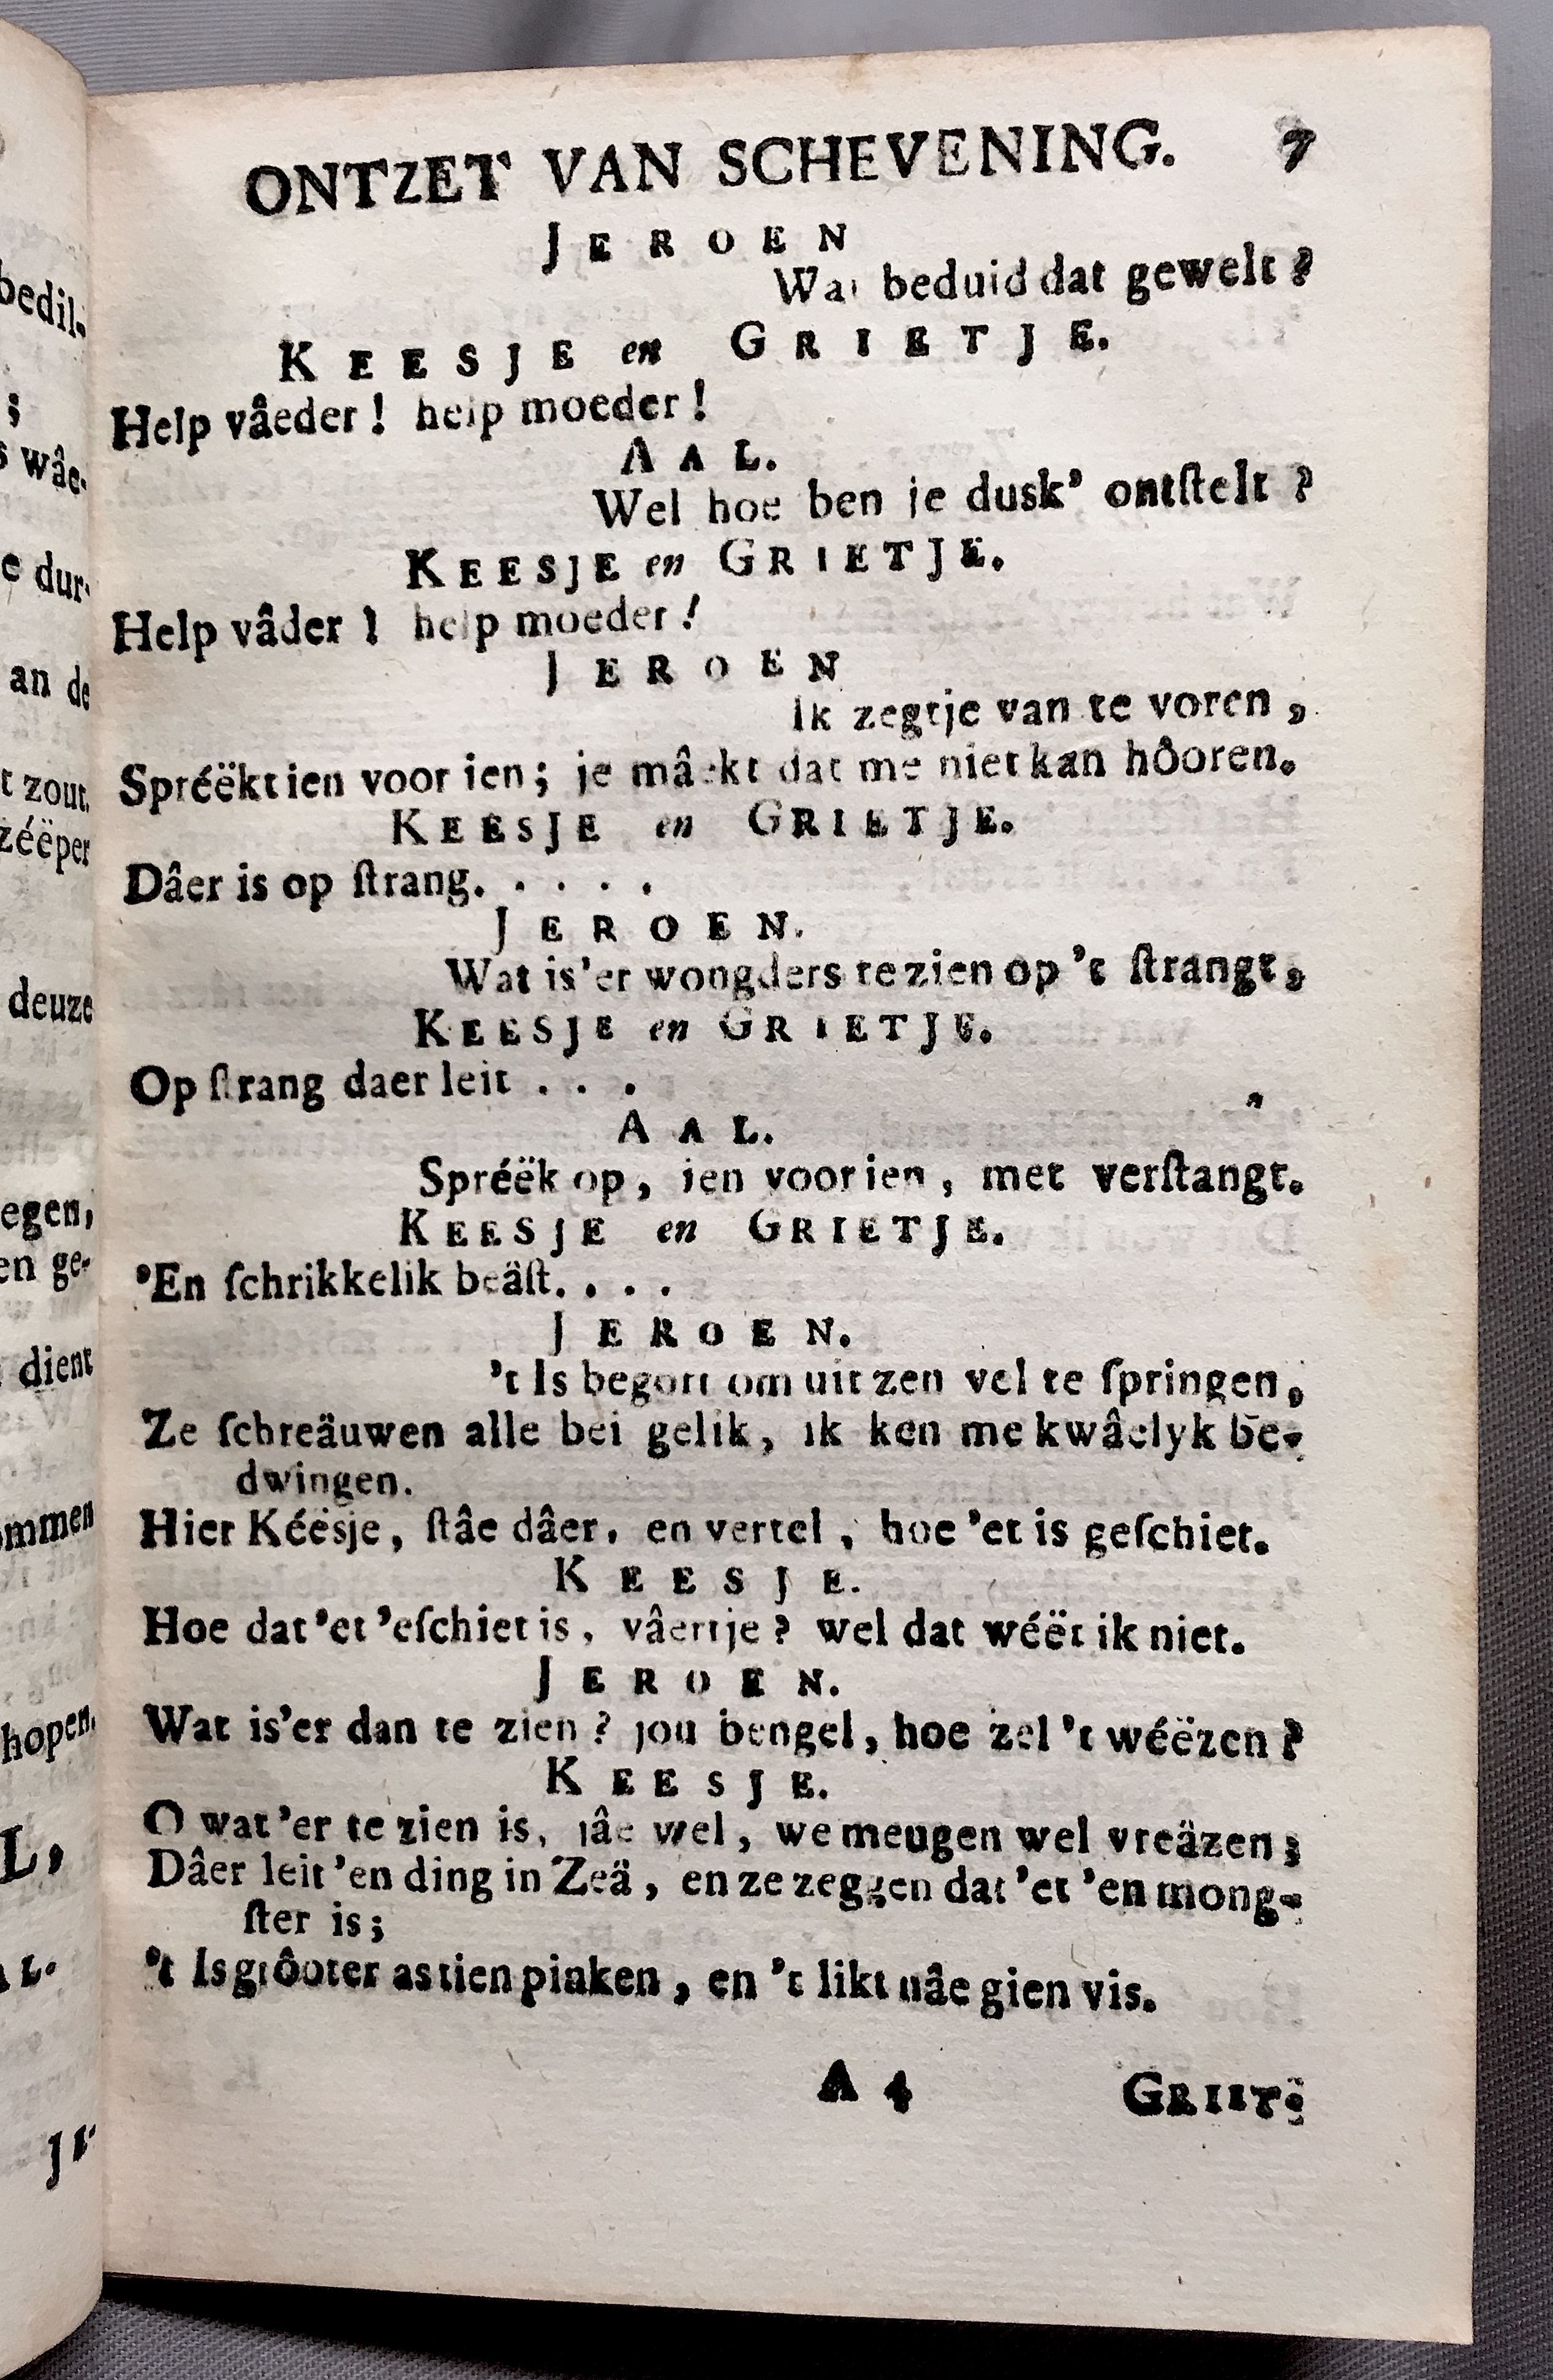 bedil.
;
s wâe-
e dur-
an de
t zout.
zéëper
deuze
egen,
en ge-
dient
ommen
hopen.
L,
AL.
JE-
ONTZET VAN SCHEVENING. 7
JEROEN
Wat beduid dat gewelt?
KEESJE en GRIETJE.
Help vâeder! help moeder!
AAL.
Wel hoe ben je dusk' ontſtelt?
KEESJE en GRIETJE.
Help vâder! help moeder!
JEROEN
Ik zegtje van te voren,
Spréëkt ien voor ien; je mâekt dat me niet kan hôoren.
KEESJE en GRIETJE.
Dâer is op ſtrang. . . . .
JEROEN.
Wat is'er wongders te zien op 't ſtrangt,
KEESJE en GRIETJE.
Op ſtrang daer leit . . .
AAL.
Spréëk op, ien voor ien, met verſtangt.
KEESJE en GRIETJE.
'En ſchrikkelik beäſt. . . .
JEROEN.
't Is begort om uit zen vel te ſpringen,
Ze ſchreäuwen alle bei gelik, ik ken me kwâelyk be-
dwingen.
Hier Kéësje, ſtâe dâer, en vertel, hoe 'et is geſchiet.
KEESJE.
Hoe dat 'et 'eſchiet is, vâertje? wel dat wéët ik niet.
JEROEN.
Wat is'er dan te zien? jou bengel, hoe zel 't wéëzen?
KEESJE.
O wat 'er te zien is, jâe wel, we meugen wel vreäzen;
Dâer leit 'en ding in Zeä, en ze zeggen dat 'et 'en mong-
ſter is;
't Is grôoter as tien pinken, en 't likt nâe gien vis.
A 4 GRIET-